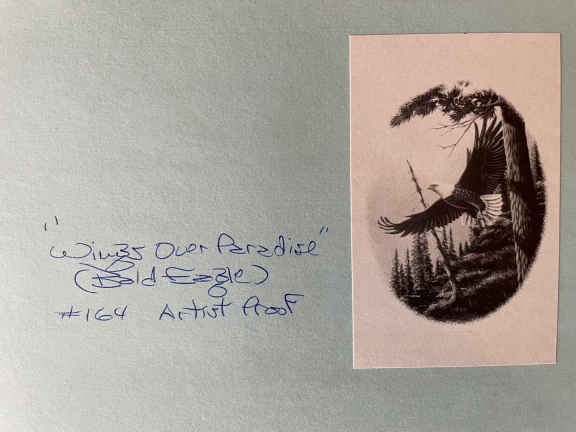 "Wings Over Paradise"
(Bald Eagle)
#164 Artist Proof